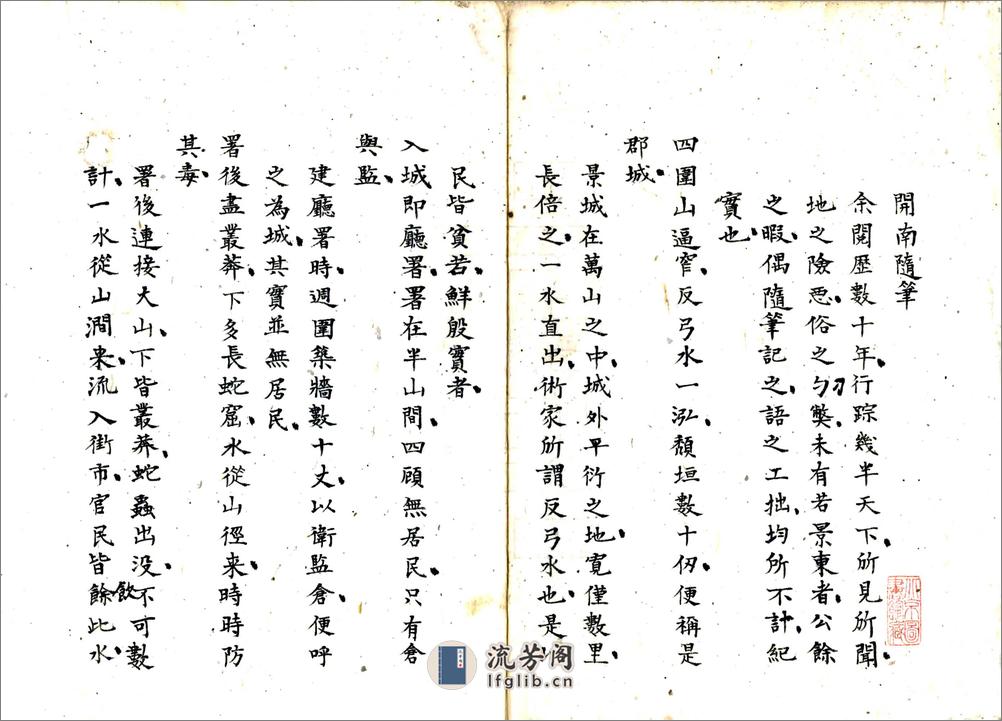 開南隨筆
余閱歷數十年、行踪幾半天下、所見所聞、
地之險惡、俗之勺刁獘、未有若景東者、公餘
之暇、偶隨筆記之、語之工拙、均所不計、紀
實也、
四圍山逼窄、反弓水一泓、頹垣數十仞、便稱是
郡城、
景城在萬山之中、城外平衍之地、寬僅數里、
長倍之、一水直出、術家所謂反弓水也、是以
民皆貧苦、鮮殷實者、
入城即廳署、署在半山間、四顧無居民、只有倉
與監、
建廳署時、週圍築牆數十丈、以衛監倉、便呼
之為城、其實並無居民、
署後盡叢莽、下多長蛇窟、水從山徑来、時時防
其毒、
署後連接大山、下皆叢莽、蛇蟲出没、不可數
計、一水從山澗来、流入街市、官民皆餘飲此水、
流芳阁
lfglib.cn